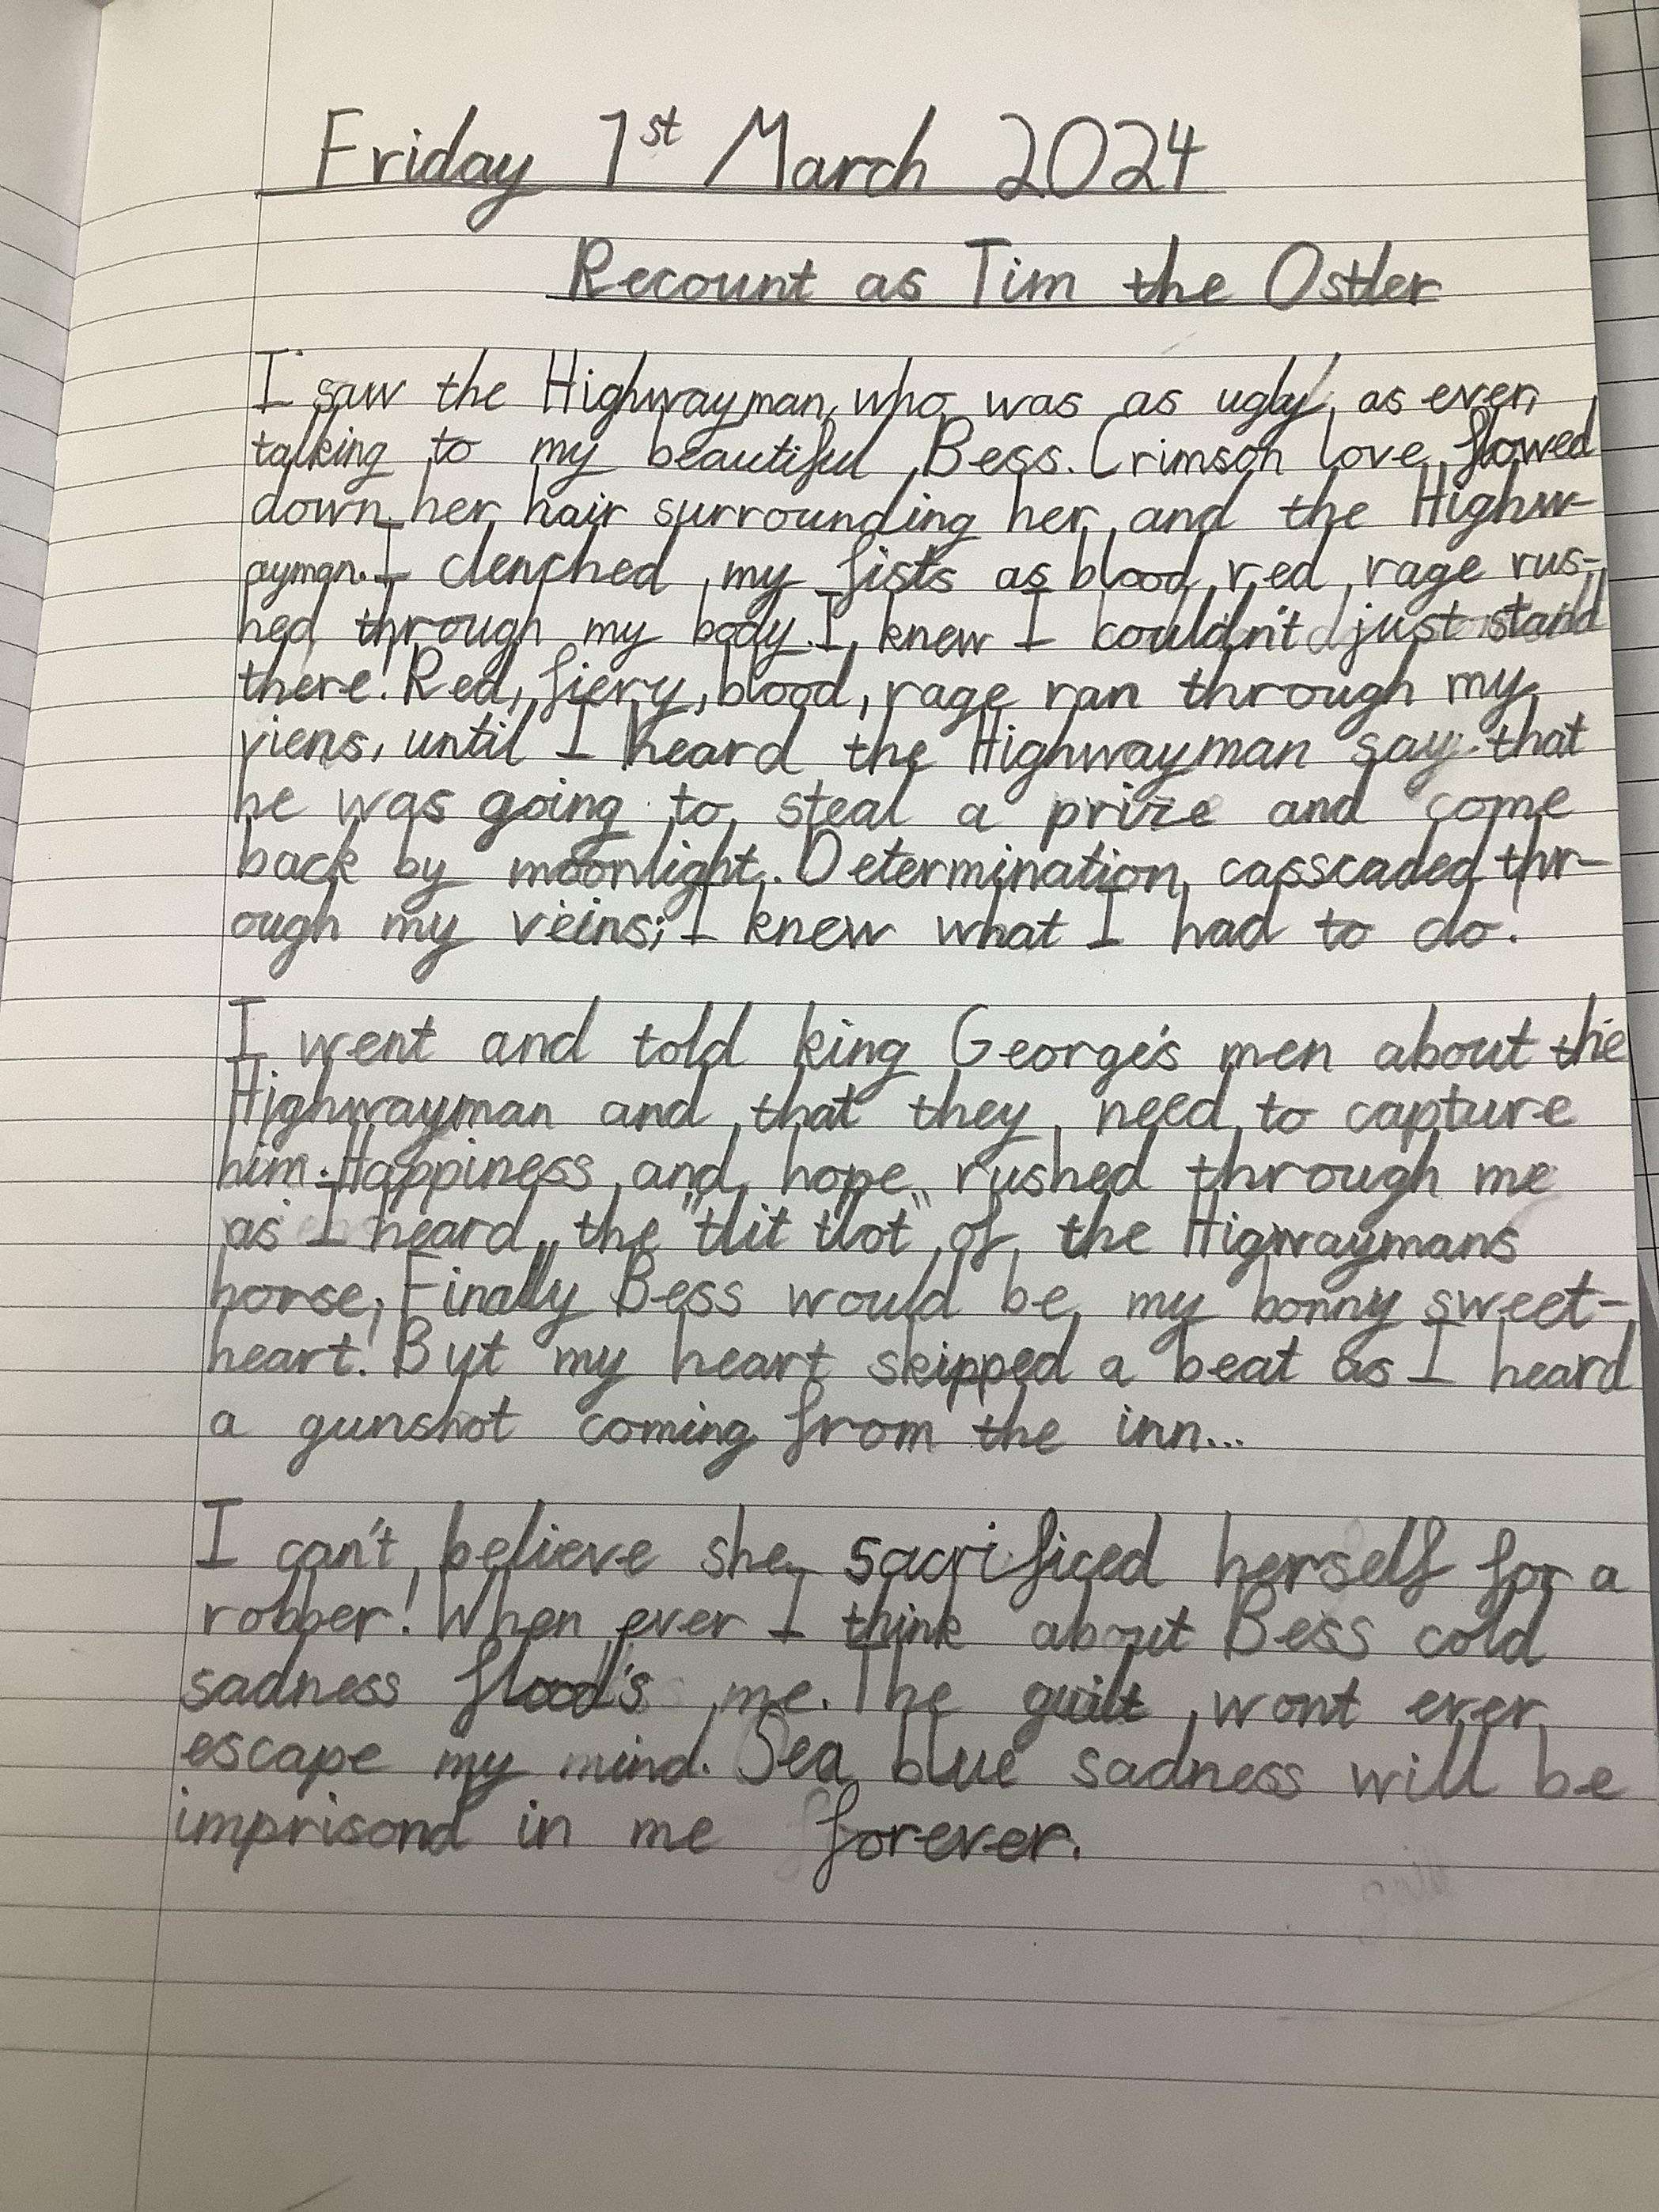 Friday 1st March 2024
Recount as Tim the Ostler
I saw the Highwayman, who was as ugly as ever,
talking to my beautiful Bess. Crimson love flowed
down her hair surrounding her and the Highw-
ayman. I clenched my fists as blood red rage rus-
hed through my body. I knew I couldn't just stand
there! Red, fiery, blood, rage ran through my
viens, until I heard the Highwayman say that
he was going to steal a prize and come
back by moonlight. Determination casscaded thr-
ough my veins; I knew what I had to do!
I went and told king George's men about the
Highwayman and that they need to capture
him. Happiness and hope rushed through me
as I heard the "tlit tlot" of the Higwaymans
horse; Finally Bess would be my bonny sweet-
heart! But my heart skipped a beat as I heard
a gunshot coming from the inn...
I can't believe she sacrificed herself for a
robber! When ever I think about Bess cold
sadness flood's me. The guilt wont ever
escape my mind. Sea blue sadness will be
imprisond in me forever.